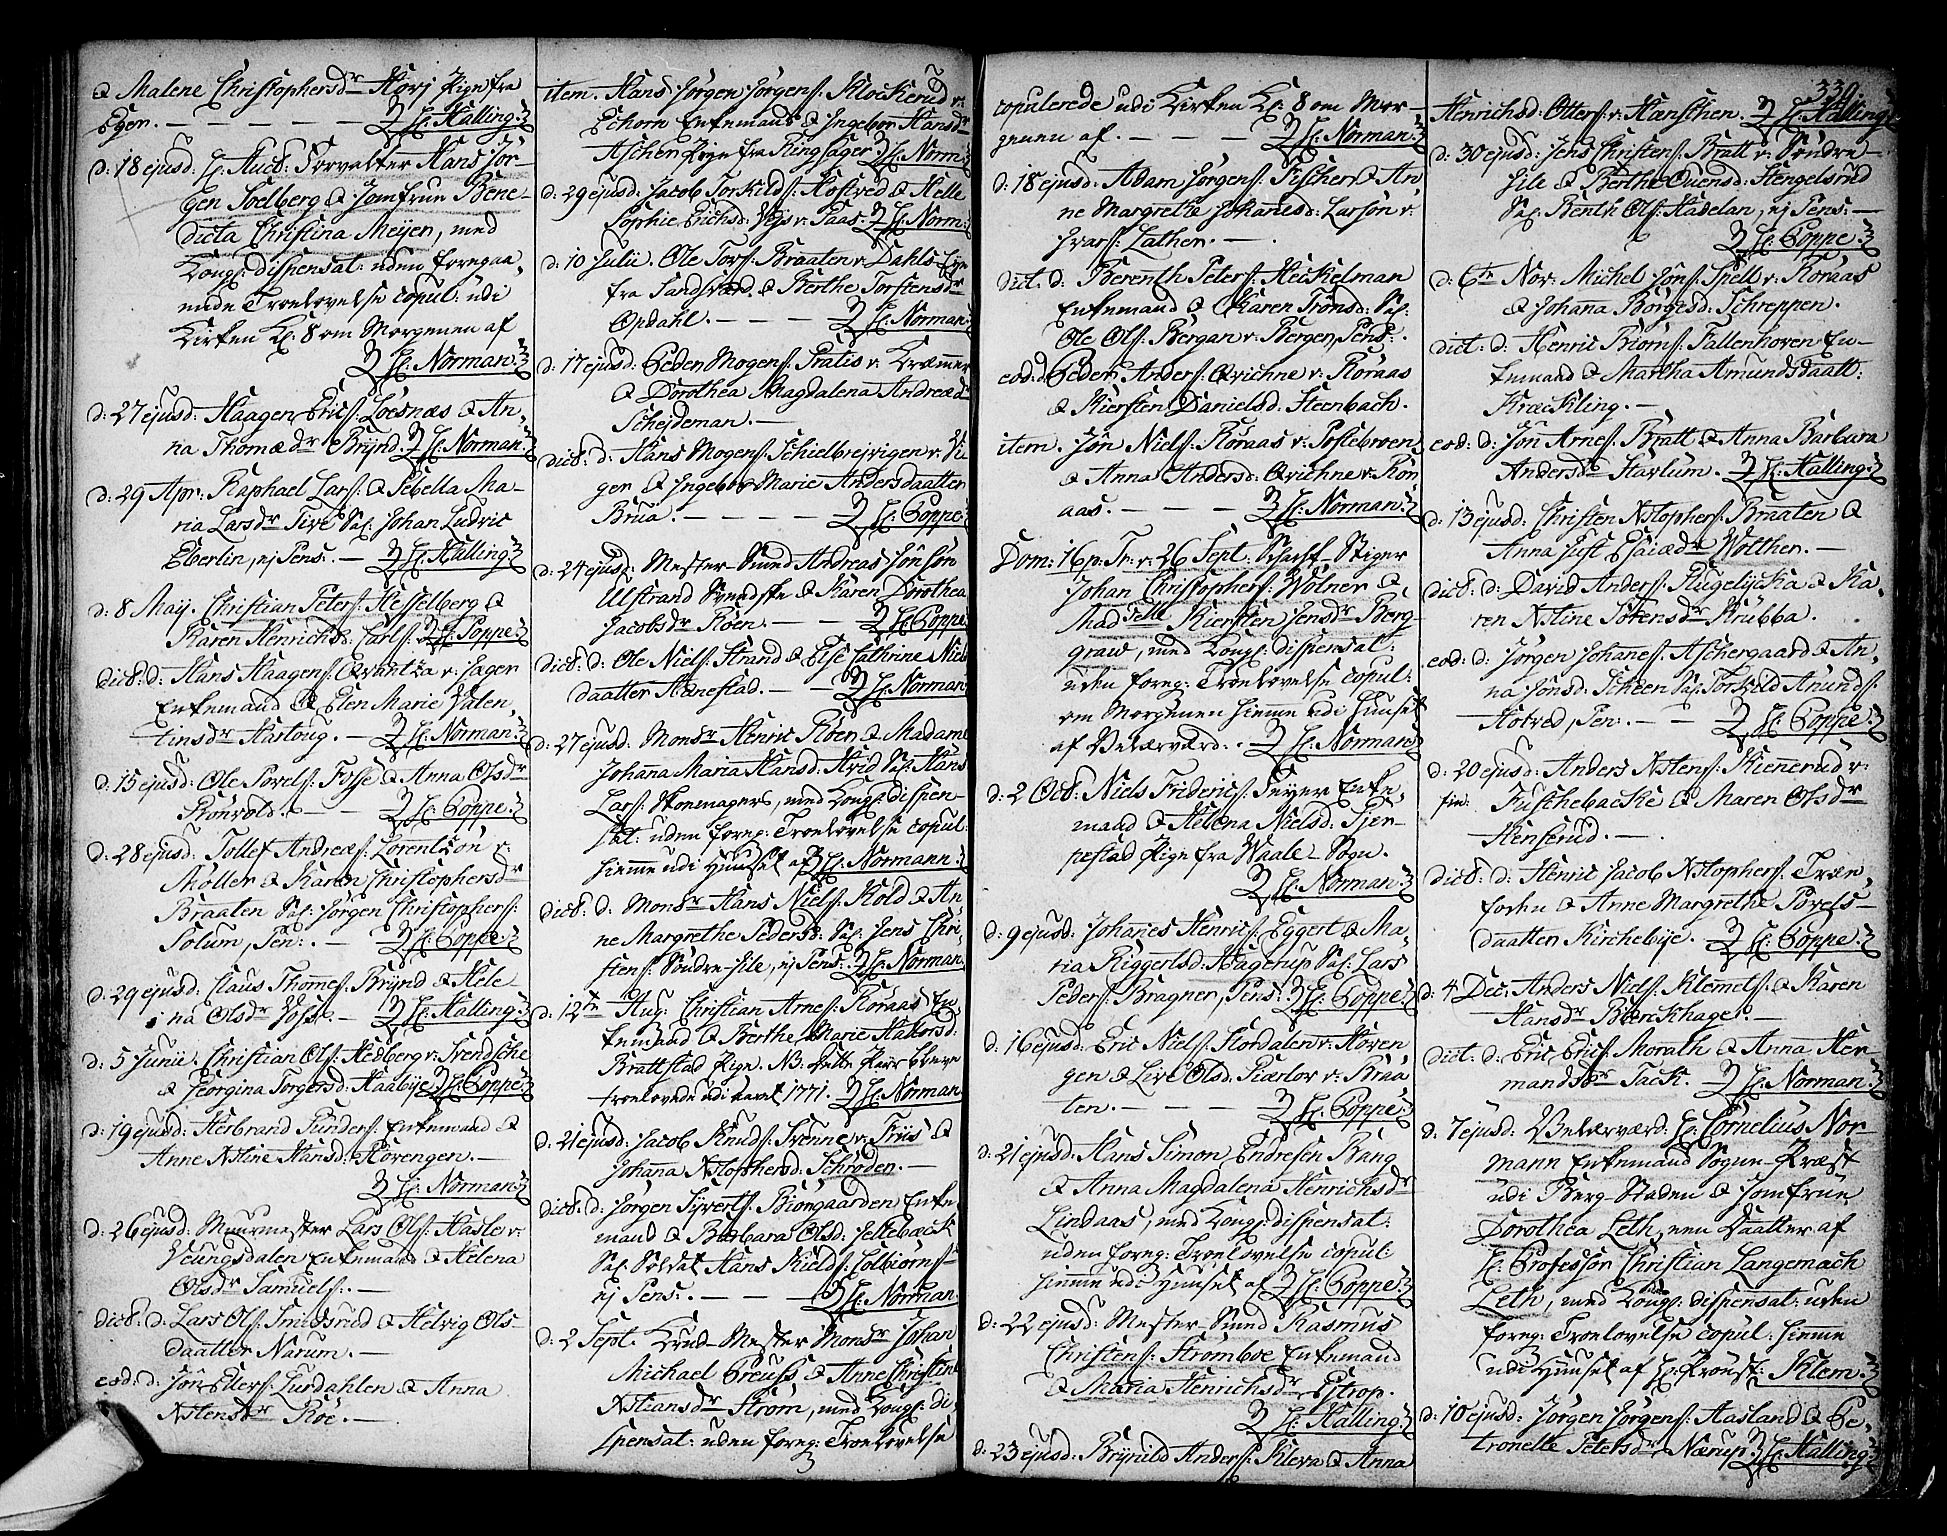 & Malene Christophersdr Hovj Pige fra
Eger. — — — — — Hr: Halling.
d: 18 ejusd: Hr: Auct: Forvalter Hans Jör-
gen Soelberg & Jomfrue Bene-
dicta Christina Meijer, med
Kongl: dispensat: uden foregaa-
ende Troelovelse copul: udi
Kirken Kl: 8 om Morgenen af
Hr: Norman.
d: 27 ejusd: Haagen Erics: Loesnæs & An-
na Thomædr Brynd. Hr: Norman.
d: 29 Apr: Raphael Lars: & Sebella Ma-
ria Larsdr Tive Sal: Johan Ludvic
Eberlin, ej Pens: — Hr: Halling.
d: 8 Maij. Christian Peters: Hesselberg &
Karen Henrichsd: Carls: Hr: Poppe.
dict: d: Hans Haagens: Qvantza v: Sager
Enkemand & Elen Marie Valen-
tinsdr Hartoug. — Hr: Norman.
d: 15 ejusd: Ole Povels: Fosse & Anna Olsdr
Rönvold. — — Hr: Poppe.
d: 28 ejusd: Tollef Andreæs: Lorentzön v:
Möller & Karen Christophersdr
Braaten Sal: Jörgen Christophers:
Solum, Pen: — Hr: Poppe.
d: 29 ejusd: Claus Thomes: Brynd & Hele
na Olsdr Foss. — Hr: Halling.
d: 5 Junii. Christian Ols: Hedberg v: Svendsche
& Georgina Torgersd: Haabye Hr: Poppe.
d: 19 ejusd: Herbrand Gunders: Enkemand &
Anne Xstine Hansd: Hovengen. —
Hr: Norman.
d: 26 ejusd: Muurmester Lars Ols: Hasle v:
Jeungsdalen Enkemand & Helena
Olsdr Samuels: —
dict: d: Lars Ols: Smidsrud & Helvig Ols-
daatter Narum. —
eod: d: Jön Eders: Lurdahlen & Anna
Xstensdr Roe. —
item. Hans Jörgen Jörgens: Klockerud v:
Echorn Enkemand & Ingebor Hansdr
Ascher Pige fra Ringsager. Hr: Norm:
d: 29 ejusd: Jacob Torkilds: Hostved & Helle
Sophie Erichsd: Vejs v: Saas. Hr: Norm:
d: 10 Julii. Ole Tors: Braaten v: Dahls Eje
fra Sandsværd. & Berthe Torstensdr
Opdahl. — — — Hr: Norman.
d: 17 ejusd: Peder Mogens: Pratis v: Kræmmer
& Dorothea Magdalena Andreædr
Schejdeman. —
dict: d: Hans Mogens: Schielbrejrigen v: Vi
gen & Ingebor Marie Andersdaatter
Brua. — — — — Hr: Poppe
d: 24 ejusd: Mester-Smed Andreas Jönsön
Ulstrand Svendske & Karen Dorothea
Jacobsdr Röen. — — Hr: Poppe
dict: d: Ole Niels: Strand & Else Cathrine Niels
daatter Henestad. — — Hr: Norman
d: 27 ejusd: Monsr Henric Roer & Madame
Johana Maria Hansd: Hvid Sal: Hans
Lars: Skomagers, med Kongl: dispen
sat: uden foreg: Troelovelse copul:
hiemme udi Huuset af Hr: Normann.
dict: d: Monsr Hans Niels: Kold & An-
ne Margrethe Pedersd: Sal: Jens Chri-
stens: Söndre-Sile, ej Pens: Hr: Norman
d: 12te Aug: Christian Arnes: Koraas En-
kemand & Berthe Marie Halvorsd:
Brattstad Pige. NB: dette Paar bleve
troelovede udi aaret 1771. Hr: Norman
d: 21 ejusd: Jacob Knuds: Svenne v: Friis &
Johana Xstophersd: Schröder. —
dict: d: Jörgen Syverts: Biörgaarden Enke-
mand & Barbara Olsd: Jellebæck
Sal: Soldat Hans Kields: Colbiörns-
ej Pens: — — — Hr: Norman.
d: 2 Sept: Krud-Mester Monsr Johan
Michael Preuss & Anne Christine
Xstiansdr Ström, med Kongl: di-
spensat: uden foreg: Troelovelse
330.
copulerede udi Kirken Kl: 8 om Mor-
genen af. — — — Hr: Norman.
d: 18 ejusd: Adam Jörgens: Fischer & An
ne Margrethe Johanesd: Larsön v:
Ivars: Lathen. —
dict: d: Berenth Peters: Heckelman
Enkemand & Karen Trönsd: Sal:
Ole Ols: Bergan v: Bergen, Pens:
eod: d: Peder Anders: Qvichne v: Koraas
& Kiersten Danielsd: Steenbach.
item. Jön Niels: Koraas v: Postebroen
& Anna Andersd: Qvichne v: Kor
aas. — — — — Hr: Norman.
Dom: 16 p: Tr: v: 26 Sept: Schacht Stiger
Johan Christophers: Wölner &
Madselle Kiersten Jensdr Berg-
graw, med Kongl: dispensat:
uden foreg: Troelovelse copul:
om Morgenen hiemme udi Huuset
af Velærværd: Hr: Norman.
d: 2 Oct: Niels Frideric: Feyer Enke-
maad & Helena Nielsd: Tjer-
pestad Pige fra Waale-Sogn.
Hr: Norman.
d: 9 ejusd: Johanes Henrics: Eggert & Ma-
ria Riggertsd: Hagerup Sal: Lars
Peders: Bragner, Pens: Hr: Poppe.
d: 16 ejusd: Eric Niels: Stordalen v: Hoven
gen & Live Olsd: Siærlor v: Braa
ten. — — — Hr: Poppe.
d: 21 ejusd: Hans Simon Endresen Bang
& Anna Magdalena Henrichsdr
Lindaas, med Kongl: dispensat:
uden foreg: Troelovelse copul:
hiemme udi Huuset af Hr: Poppe.
d: 22 ejusd: Mester-Smed Rasmus
Christens: Stromboe Enkemand
& Maria Henrichsdr Östrop.
Hr: Halling.
d: 23 ejusd: Brynild Anders: Kleva & Anna
Henrichsd: Otters: v: Hanschen. Hr: Halling
d: 30 ejusd: Jens Christens: Bratt v: Söndre-
Sile & Berthe Ouensd: Stengelsrud
Sal: Benth Ols: Hadelan, ej Pens: —
Hr: Poppe.
d: 6te Nov: Michel Jöns: Spell v: Koraas
& Johana Börgesd: Schreppen.
dict: d: Henric Biörns: Fallenhoven En-
kemand & Martha Amundsdaatt:
Kræckling. —
eod: d: Jön Arnes: Bratt & Anna Barbara
Andersdr Stavlum. Hr: Halling.
d: 13 ejusd: Christen Xstophers: Braaten &
Anna Just Esaiædr Wolther. —
dict: d: David Anders: Flugelycka & Ka-
ren Xstine Sörensdr Krubba.
eod: d: Jörgen Johanes: Aschergaard & An-
na Jönsd: Scheen Sal: Torkild Amunds:
Hotved, Pen: — — Hr: Poppe.
d: 20 ejusd: Anders Xstens: Kiennerud v:
Fuschebacke & Maren Olsdr
Stenserud. —
dict: d: Henric Jacob Xstophers: Træn-
forku & Anne Margrethe Povels-
daatter Kirchebije. Hr: Poppe.
d: 4 Dec: Anders Niels: Klemets: & Karen
Hansdr Bierckhage. —
dict: d: Eric Erics: Morath & Anna Her-
mandsdr Tack. — Hr: Norman.
d: 7 ejusd: Velærværd: Hr: Cornelius Nor-
mann Enkemand Sogne-Præst
udi Berg Staden & Jomfrue
Dorothea Leth, een Daatter af
Hr: Professor Christian Langemach
Leth, med Kongl: dispensat: uden
foreg: Troelovelse copul: hiemme
udi Huuset af Hr: Provst: Klem.
d: 10 ejusd: Jörgen Jörgens: Aasland & Pe-
tronelle Petersdr Nærup. Hr: Halling.